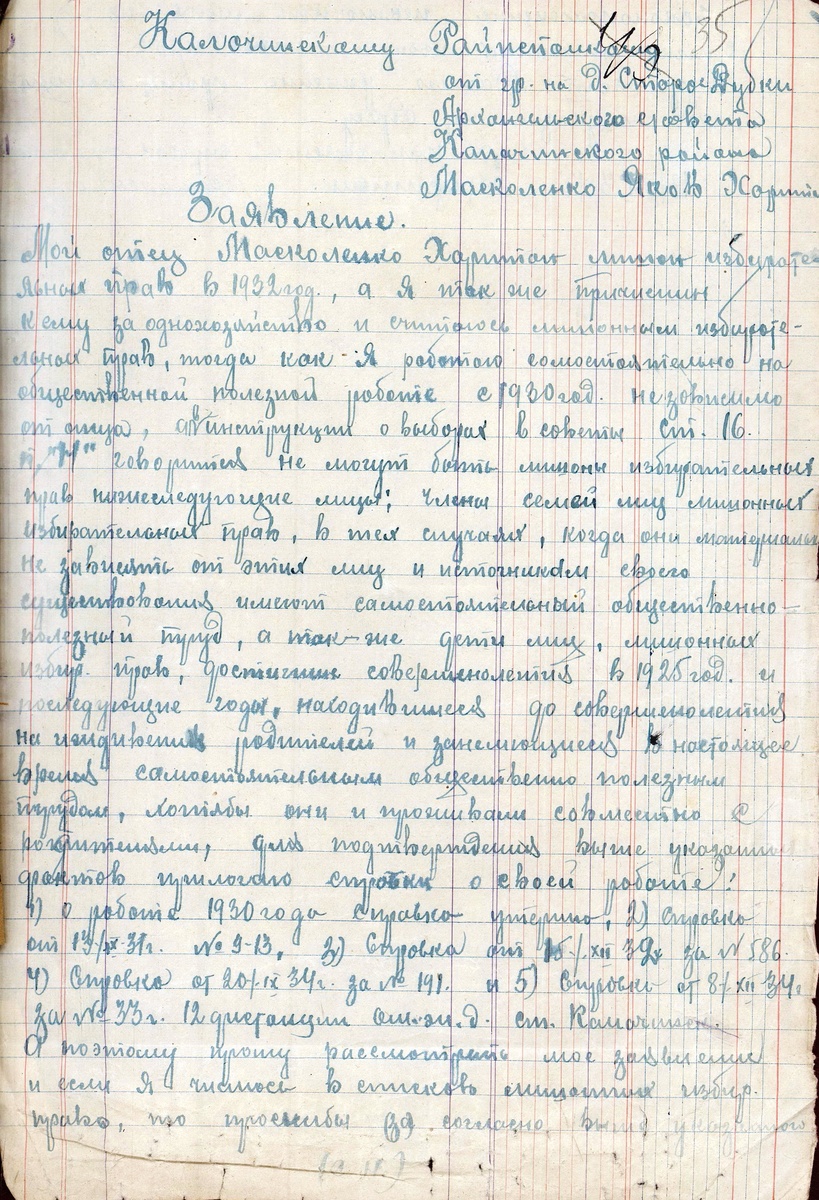 35
Калочинскому Райисполкому
от гр. на д. Старо-Дубки
Архангельского совета
Калачинского района
Масколенко Яков Харит
Заявление.
Мой отец Масколенко Харитон лишон избирате-
льных прав в 1932 год., а я так же причислин
кему за однохозяйство и считаюсь лишонным избирате-
льных прав, тогда как я работаю самостоятельно на
общественной полезной работе с 1930 год. независимо
от отца, а в инструкции о выборах в советы ст. 16.
говорится не могут быть лишоны избирательных
прав нижеследующие лицы; члены семей лиц лишонных
избирательных прав, в тех случаях, когда они материально
не зависять от этих лиц и источникам своего
существования имеют самостоятельный общественно-
полезный труд, а так-же дети лиц, лишонных
избир. прав, достигшие совершенолетия в 1925 год. и
последующие годы, находившиеся до совершенолетия
на иждивении родителей и занемющиеся в настоящее
время самостоятельным общественно полезным
трудом, хотябы они и проживали совместно с
родителями, для подтверждения выше указанных
фактов прилогаю справки о своей работе:
1) о работе 1930 года справка утерино, 2) Справка
от 13/IX-31г. № 9-13, 3) Справка от 15/XII 32г за № 586.
4) Справка от 20/IX 34г. за № 191. и 5) Справка от 8/XII-34г.
за № 33г. 12 дистанции ом. ж. д. ст. Калачинск.
А поэтому прошу рассмотреть мое заявление
и если я числюсь в списков лишонных избир.
права, то просил бы согласно выше указанного